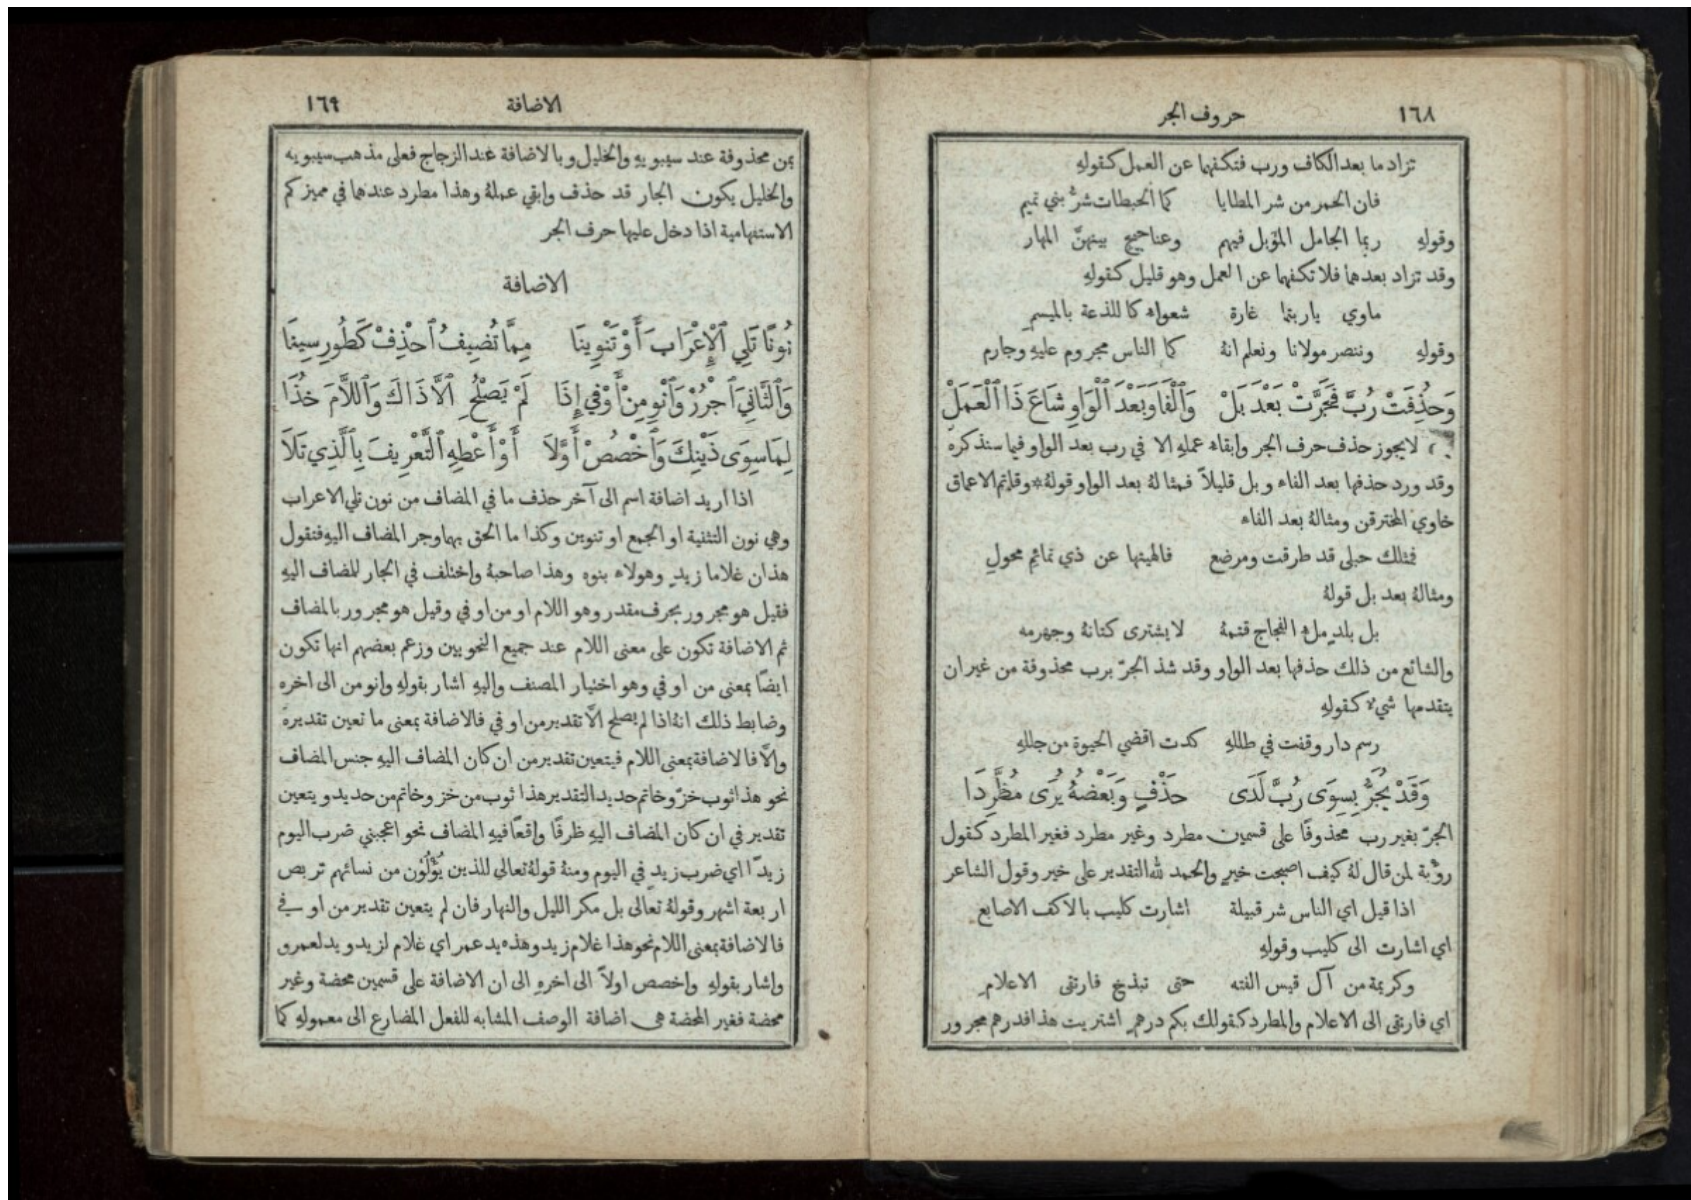 ١٦٨ حروف الجر
تزاد ما بعد الكاف ورب فتكفهما عن العمل كقولهِ
فان الحمر من شر المطايا كما الحبطات شرُّ بني تميم
وقولهِ ربما الجامل المؤبل فيهم وعناجيج بينهنَّ المهار
وقد تزاد بعدها فلا تكفهما عن العمل وهو قليل كقولهِ
ماوي ياربتما غارة شعواء كا للذعة بالميسمِ
وقولهِ وننصر مولانا ونعلم انهُ كما الناس مجروم عليهِ وجارم
وَحُذِفَتْ رُبَّ فَجَرَّتْ بَعْدَ بَلْ وَٱلْفَا وَبَعْدَ ٱلْوَاوِ شَاعَ ذَا ٱلْعَمَلْ
لا يجوز حذف حرف الجر وابقاء عملهِ الا في رب بعد الواو فيما سنذكره
وقد ورد حذفها بعد الفاء وبل قليلاً فمثالهُ بعد الواو قولهُ * وقاتم الاعماق
خاوي المخترقن ومثالهُ بعد الفاء
فمثلك حبلى قد طرقت ومرضع فالهيتها عن ذي تمائم محولِ
ومثالهُ بعد بل قولهُ
بل بلدٍ ملء الفجاج قتمهُ لا يشترى كتانهُ وجهرمه
والشائع من ذلك حذفها بعد الواو وقد شذ الجرّ برب محذوفة من غيران
يتقدمها شيء كقولهِ
رسم دار وقفت في طللهِ كدت اقضي الحيوة من جللهِ
وَقَدْ يُجَرُّ بِسِوَى رُبَّ لَدَى حَذْفٍ وَبَعْضُهُ يُرَى مُطَّرِدَا
الجرّ بغير رب محذوفًا على قسمين مطرد وغير مطرد فغير المطرد كقول
روُّبة لمن قال لهُ كيف اصبحت خيرٍ والحمد لله التقدير على خير وقول الشاعر
اذا قيل اي الناس شر قبيلة اشارت كليب بالاكف الاصابع
اي اشارت الى كليب وقولهِ
وكريمة من آل قيس الفته حتى تبذخ فارتقى الاعلامِ
اي فارتقى الى الاعلام والمطرد كقولك بكم درهمٍ اشتريت هذا فدرهم مجرور
الاضافة ١٦٩
بمن محذوفة عند سيبويهِ والخليل وبالاضافة عند الزجاج فعلى مذهب سيبويه
والخليل يكون الجار قد حذف وابقي عملهُ وهذا مطرد عندها في مميز كم
الاستفهامية اذا دخل عليها حرف الجر
الاضافة
نُونًا تَلِي ٱلْإِعْرَابَ أَوْ تَنْوِينَا مِمَّا تُضِيفُ ٱحْذِفْ كَطُورِ سِينَا
وَٱلثَّانِيَ ٱجْرُرْ وَٱنْوِ مِنْ أَوْ فِي إِذَا لَمْ يَصْلُحِ ٱلاَّ ذَاكَ وَٱللاَّمَ خُذَا
لِمَا سِوَى ذَيْنِكَ وَٱخْصُصْ أَوَّلاَ أَوْ أَعْطِهِ ٱلتَّعْرِيفَ بِٱلَّذِي تَلاَ
اذا اريد اضافة اسم الى آخر حذف ما في المضاف من نون تلي الاعراب
وهي نون التثنية او الجمع او تنوين وكذا ما الحق بهما وجر المضاف اليهِ فتقول
هذان غلاما زيدٍ وهولاء بنوه وهذا صاحبهُ واختلف في الجار للمضاف اليهِ
فقيل هو مجرور بحرف مقدر وهو اللام او من او في وقيل هو مجرور بالمضاف
ثم الاضافة تكون على معنى اللام عند جميع النحويين وزعم بعضهم انها تكون
ايضًا بمعنى من او في وهو اختيار المصنف واليهِ اشار بقولهِ وانو من الى اخره
وضابط ذلك انهُ اذا لم يصلح الاَّ تقدير من او في فالاضافة بمعنى ما تعين تقديرهُ
والاَّ فالاضافة بمعنى اللام فيتعين تقدير من ان كان المضاف اليهِ جنس المضاف
نحو هذا ثوب خزّ وخاتم حديد التقدير هذا ثوب من خز وخاتم من حديد ويتعين
تقدير في ان كان المضاف اليهِ ظرفًا واقعًا فيهِ المضاف نحو اعجبني ضرب اليوم
زيدًا اي ضرب زيدٍ في اليوم ومنهُ قولهُ تعالى للذين يُؤْلُوْن من نسائهم تربص
اربعة اشهر وقولهُ تعالى بل مكر الليل والنهار فان لم يتعين تقدير من او في
فالاضافة بمعنى اللام نحو هذا غلام زيد وهذه يد عمر اي غلام لزيد ويد لعمرو
واشار بقولهِ واخصص اولاً الى اخرهِ الى ان الاضافة على قسمين محضة وغير
محضة فغير المحضة هي اضافة الوصف المشابه للفعل المضارع الى معمولهِ كما